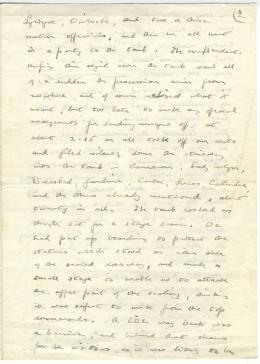 (3
Lythgoe, Winlock, and two or three
native officials, and then we all went
in a party to the tomb. The correspondents
hanging there right above the tomb saw all
of a sudden the procession arrive from
nowhere, and of course realised what it
meant, but too late to make any special
arrangements for sending messages off. At
about 2.15 we all took off our coats
and filed silently down the stairway
into the tomb. Carnarvon, Lady Evelyn,
Breasted, Gardiner, Carter, Lucas, Callender,
and the others already mentioned, about
twenty in all. The tomb looked as
though set for a stage scene. We
had put up boarding to protect the
statues which stood on either side
of the sealed doorway, and made a
small stage to enable us to attack
the upper part of the sealing, as this
it was safest to work from the top
downwards. A little way back was
a barrier, and behind that chairs
for the visitors, as it was likely to be